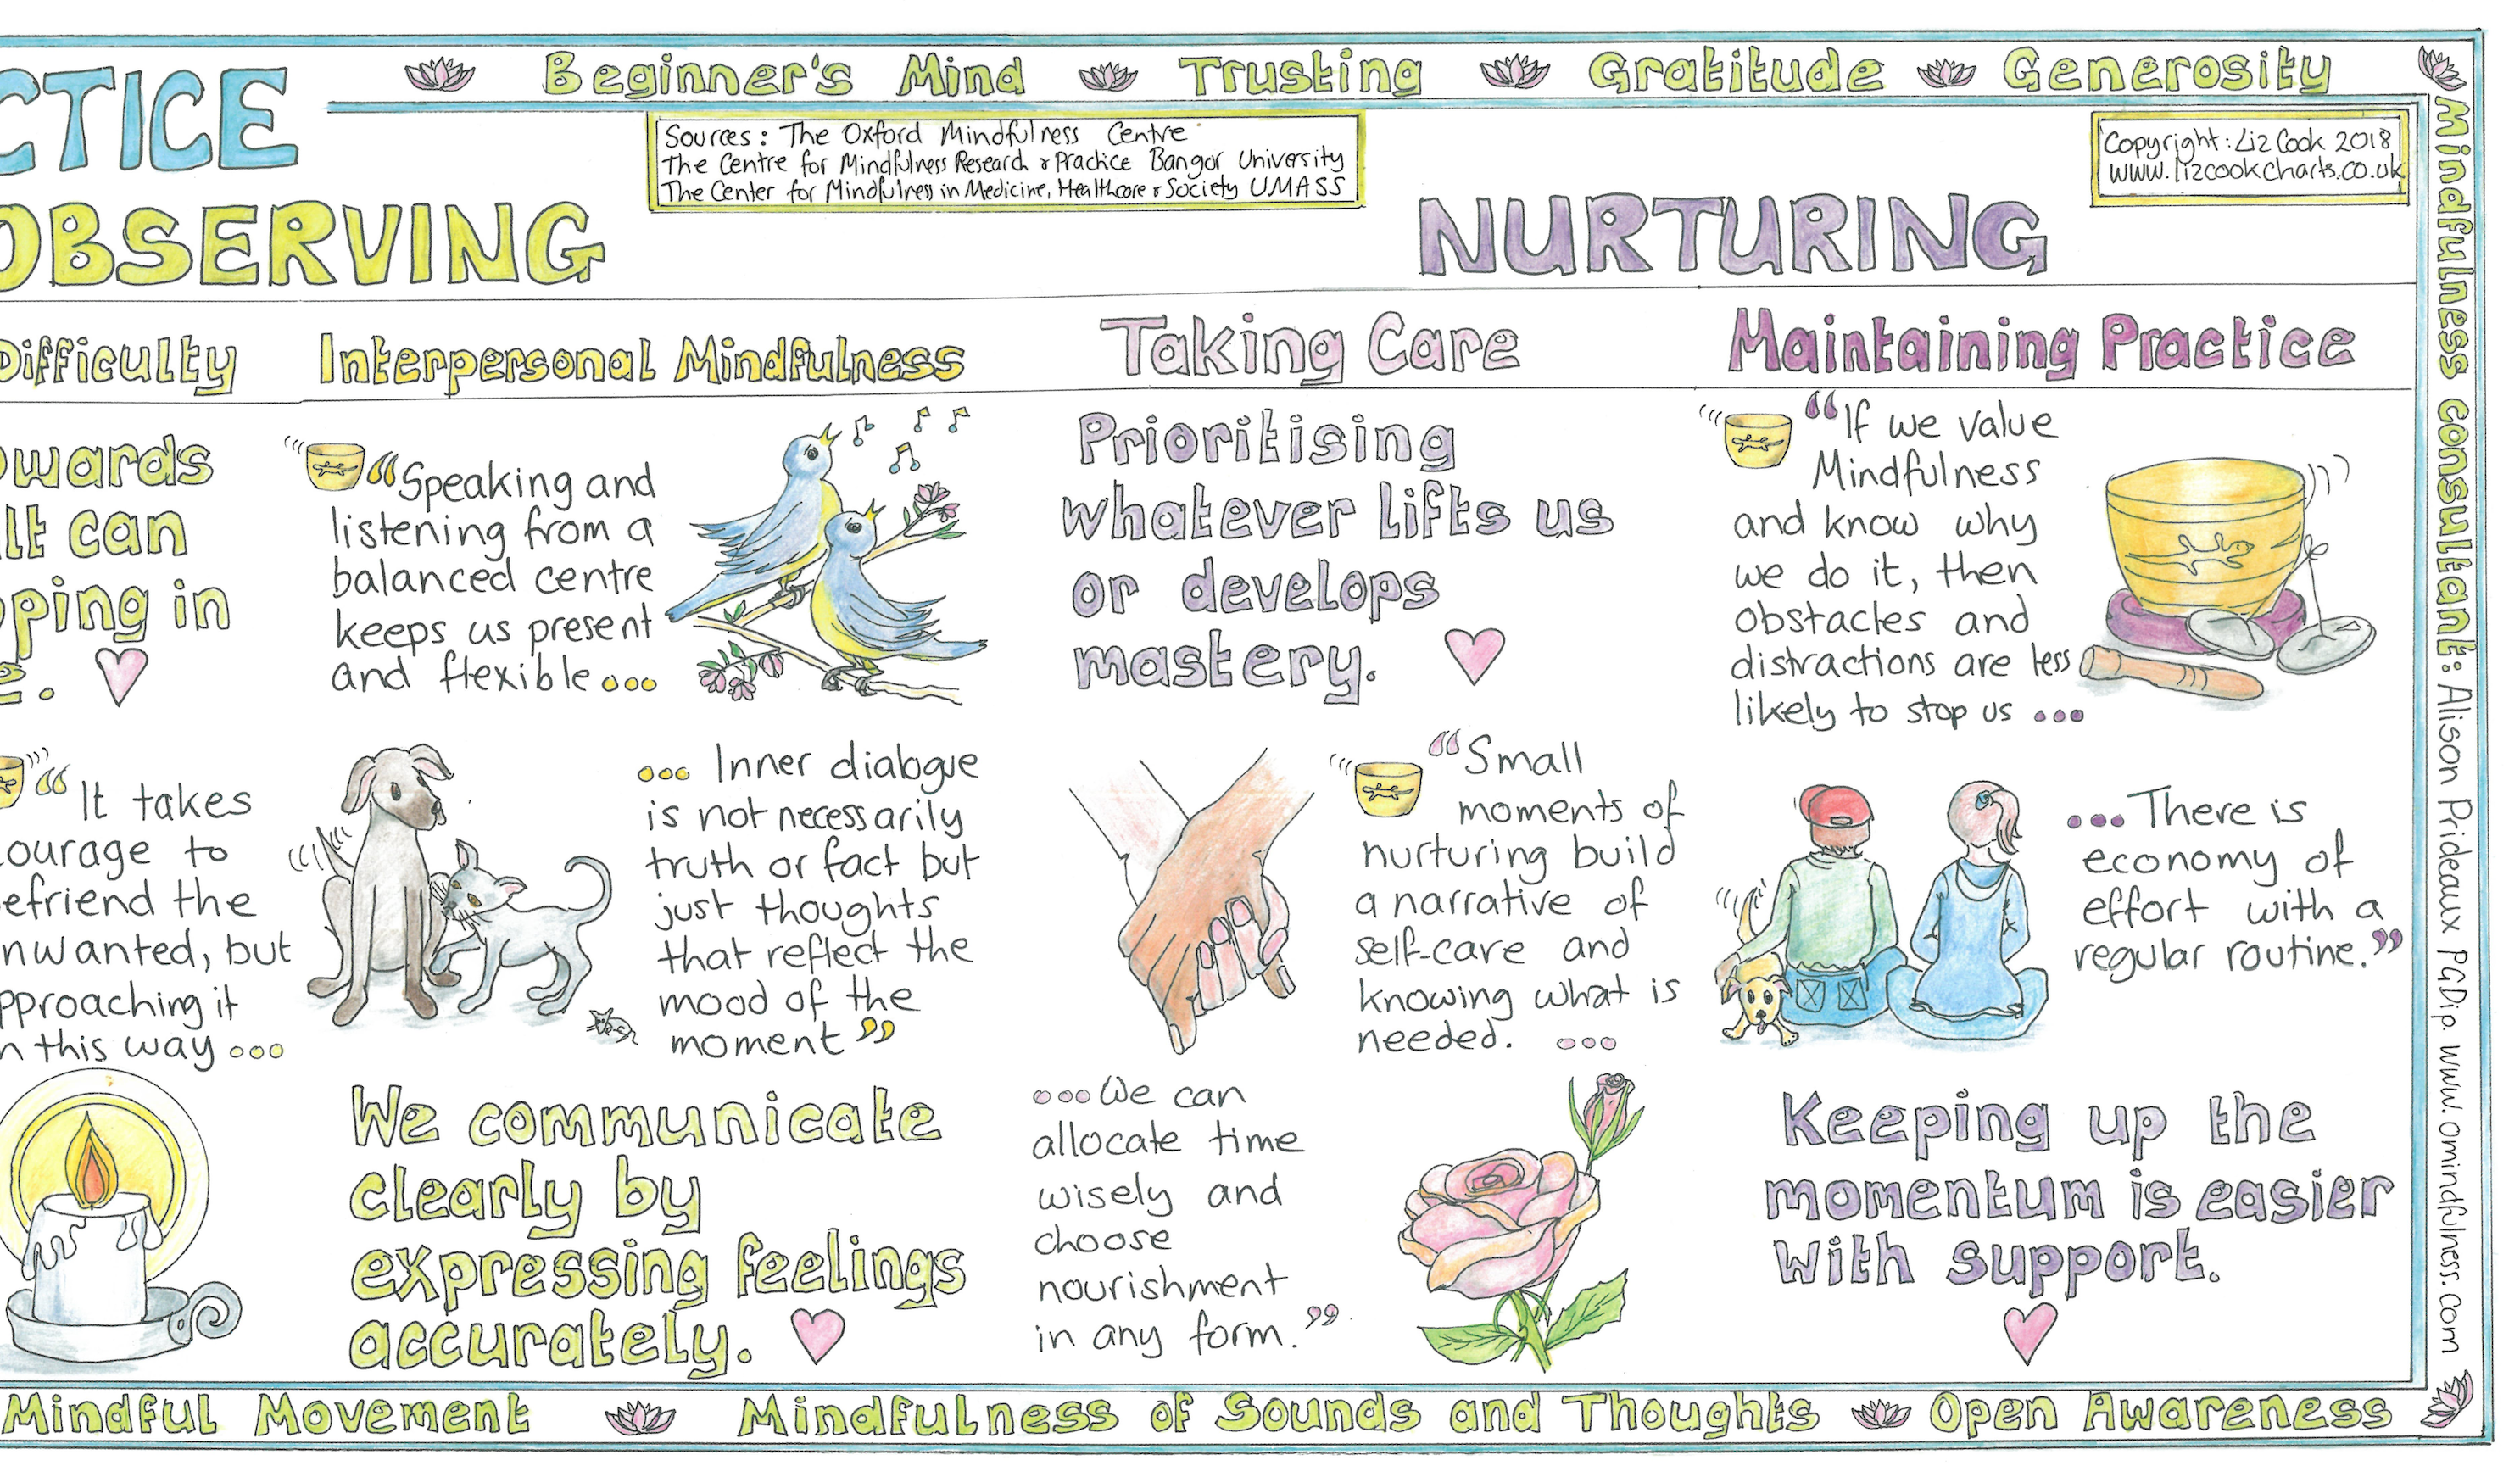 Beginner's Mind Trusting Gratitude Generosity
CTICE
Sources: The Oxford Mindfulness Centre
The Centre for Mindfulness Research & Practice Bangor University
The Center for Mindfulness in Medicine, Healthcare & Society UMASS
Copyright: Liz Cook 2018
www.lizcookcharts.co.uk
OBSERVING
NURTURING
Difficulty
wards
lt can
ping in
e.
“It takes
courage to
efriend the
nwanted, but
pproaching it
n this way ...
Interpersonal Mindfulness
“Speaking and
listening from a
balanced centre
keeps us present
and flexible ...
... Inner dialogue
is not necessarily
truth or fact but
just thoughts
that reflect the
mood of the
moment”
We communicate
clearly by
expressing feelings
accurately.
Taking Care
Prioritising
whatever lifts us
or develops
mastery.
“Small
moments of
nurturing build
a narrative of
self-care and
knowing what is
needed. ...
... We can
allocate time
wisely and
choose
nourishment
in any form.”
Maintaining Practice
“If we value
Mindfulness
and know why
we do it, then
obstacles and
distractions are less
likely to stop us ...
... There is
economy of
effort with a
regular routine.”
Keeping up the
momentum is easier
with support.
Mindfulness consultant: Alison Prideaux PGDip. www.omindfulness.com
Mindful Movement Mindfulness of Sounds and Thoughts Open Awareness